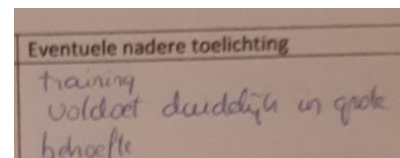 Eventuele nadere toelichting
training
voldoet duidelijk in grote
behoefte